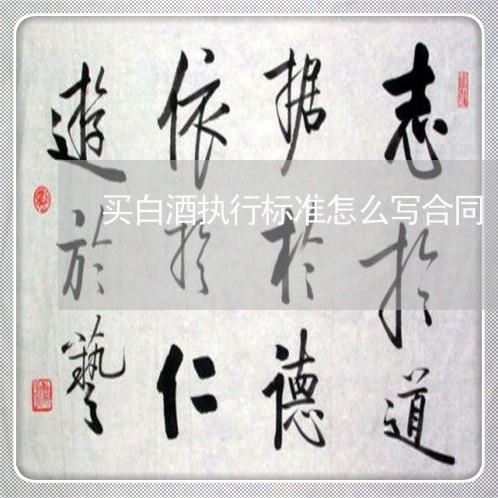 志於道
据於德
依於仁
遊於藝
买白酒执行标准怎么写合同